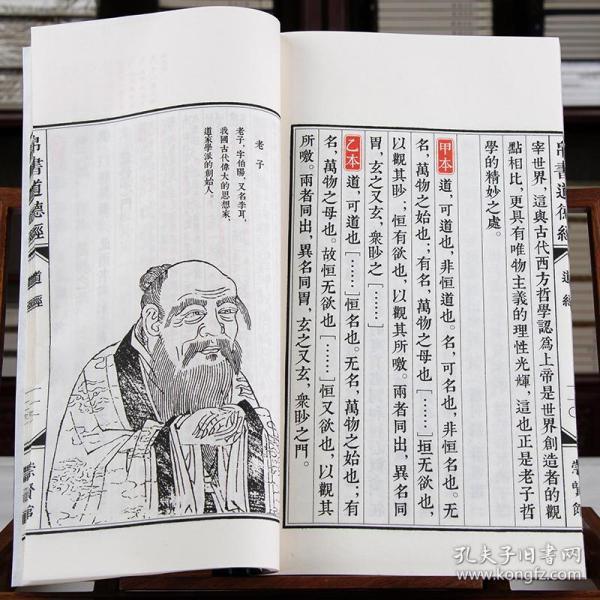 帛書道德經
道經
宰世界，這與古代西方哲學認爲上帝是世界創造者的觀
點相比，更具有唯物主義的理性光輝，這也正是老子哲
學的精妙之處。
甲本 道，可道也，非恒道也。名，可名也，非恒名也。无
名，萬物之始也；有名，萬物之母也[……]垣无欲也，
以觀其眇；恒有欲也，以觀其所噭。兩者同出，異名同
胃，玄之又玄，衆眇之[……]
乙本 道，可道也[……]恒名也。无名，萬物之始也；有
名，萬物之母也。故恒无欲也[……]恒又欲也，以觀其
所噭。兩者同出，異名同胃，玄之又玄，衆眇之門。
崇賢館
老子
老子，字伯陽，又名李耳，
我國古代偉大的思想家、
道家學派的創始人。
帛書道德經
道經
崇賢館
孔夫子旧书网
www.kongfz.com